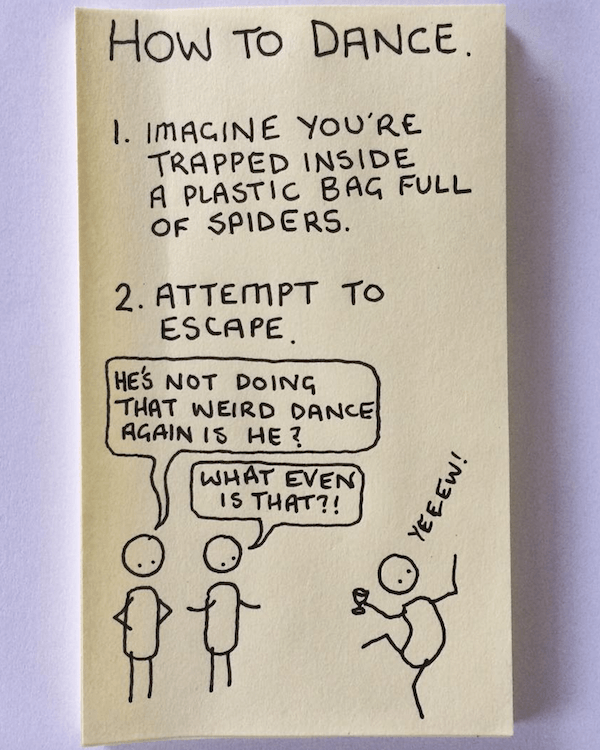 HOW TO DANCE.
1. IMAGINE YOU'RE
TRAPPED INSIDE
A PLASTIC BAG FULL
OF SPIDERS.
2. ATTEMPT TO
ESCAPE.
HE'S NOT DOING
THAT WEIRD DANCE
AGAIN IS HE?
WHAT EVEN
IS THAT?!
YEEEW!